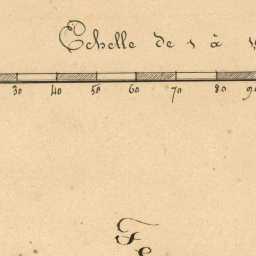 Echelle de 1 à
30 40 50 60 70 80 90
F
e